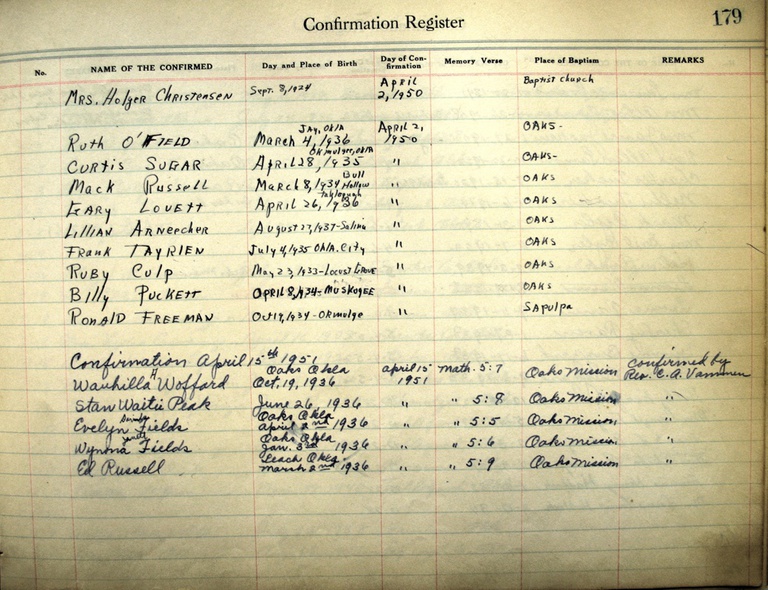 Confirmation Register 179
No. NAME OF THE CONFIRMED Day and Place of Birth Day of Confirmation Memory Verse Place of Baptism REMARKS
Mrs. Holger Christensen Sept. 8, 1924 April 2, 1950 Baptist Church
Jay, Okla
Ruth O'Field March 4, 1936 April 2, 1950 OAKS-
Okmulgee, Okla
Curtis Sugar April 28, 1935 " OAKS-
Bull Hollow
Mack Russell March 8, 1934 " OAKS
Gary Lovett April 26, 1936 " OAKS
Lillian Arneecher August 27, 1937-Salina " OAKS
Frank Tayrien July 4, 1935 Okla. City " OAKS
Ruby Culp May 23, 1933-Locust Grove " OAKS
Billy Puckett April 8, 1934-Muskogee " OAKS
Ronald Freeman Oct 19, 1934-Okmulge " Sapulpa
Confirmation April 15th 1951
Oaks Okla
Wauhilla A Wofford Oct. 19, 1936 April 15 1951 Math. 5:7 Oaks Mission Confirmed by Rev. C. A.
Stan Waitie Peak June 26, 1936 " " 5:8 Oaks Mission "
Oaks Okla
Evelyn Fields April 2nd 1936 " " 5:5 Oaks Mission "
Oaks Okla
Wynona Fields Jan. 3rd 1936 " " 5:6 Oaks Mission "
Leach Okla
Ed Russell March 2nd 1936 " " 5:9 Oaks Mission "